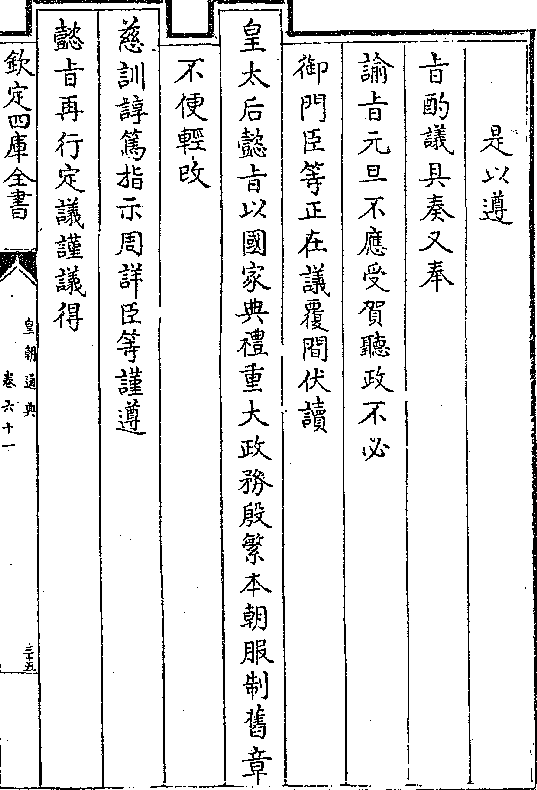 是以遵
旨酌議具奏又奉
諭旨元旦不應受賀聽政不必
御門臣等正在議覆間伏讀
皇太后懿旨以國家典禮重大政務殷繁本朝服制舊章
不便輕改
慈訓諄篤指示周詳臣等謹遵
懿旨再行定議謹議得
欽定四庫全書
皇朝通典
卷六十一
三十五